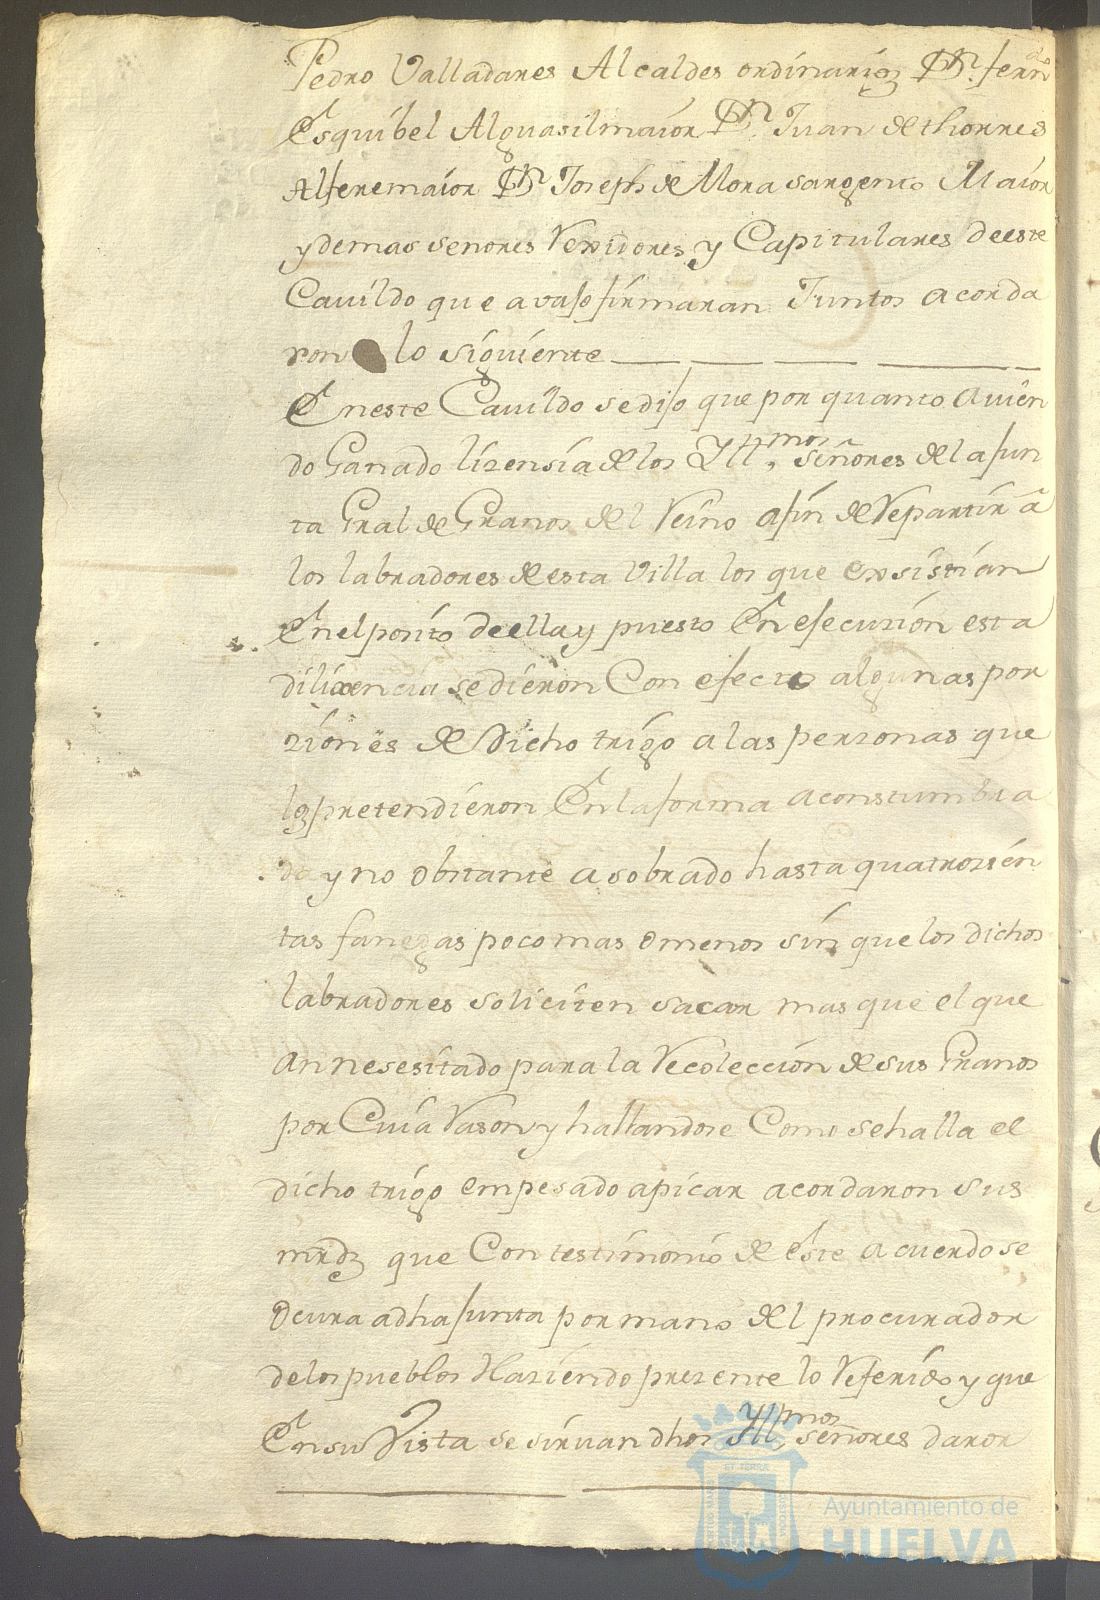 Pedro Valladares Alcaldes ordinarios Dn. ferndo
Esquibel Alguasilmaior Dn. Juan de thorres
Alferemaior Dn Joseph de Mora sargento Maior
y demas senores Rexidores y Capitulares deeste
Cavildo que avajo firmaran Juntos acorda
ron lo siguiente
En este Cavildo se dijo que por quanto avien
do Ganado lizensia de los Yllmos. señores de la jun
ta Gral de Granos del Reino afin de Repartir â
los labradores de esta Villa los que exsistian
En el posito de ella y puesto En ejecuzion esta
dilixencia se dieron Con efecto algunas por
ziones de Dicho trigo a las personas que
los pretendieron En la forma aconstumbra
da y no obstante a sobrado hasta quatrozien
tas fanegas poco mas o menos sin que los dichos
labradores soliciten sacar mas que el que
an nesesitado para la Recoleccion de sus Granos
por Cuia Rason y hallandose Como se halla el
dicho trigo empesado apicar acordaron sus
mrds que Con testimonio de este acuerdo se
Ocura a dha junta por mano del procurador
de los pueblos Haziendo prezente lo Referido y que
En su Vista se sirvan dhos Yllmos. señores dar or
Ayuntamiento de
HUELVA